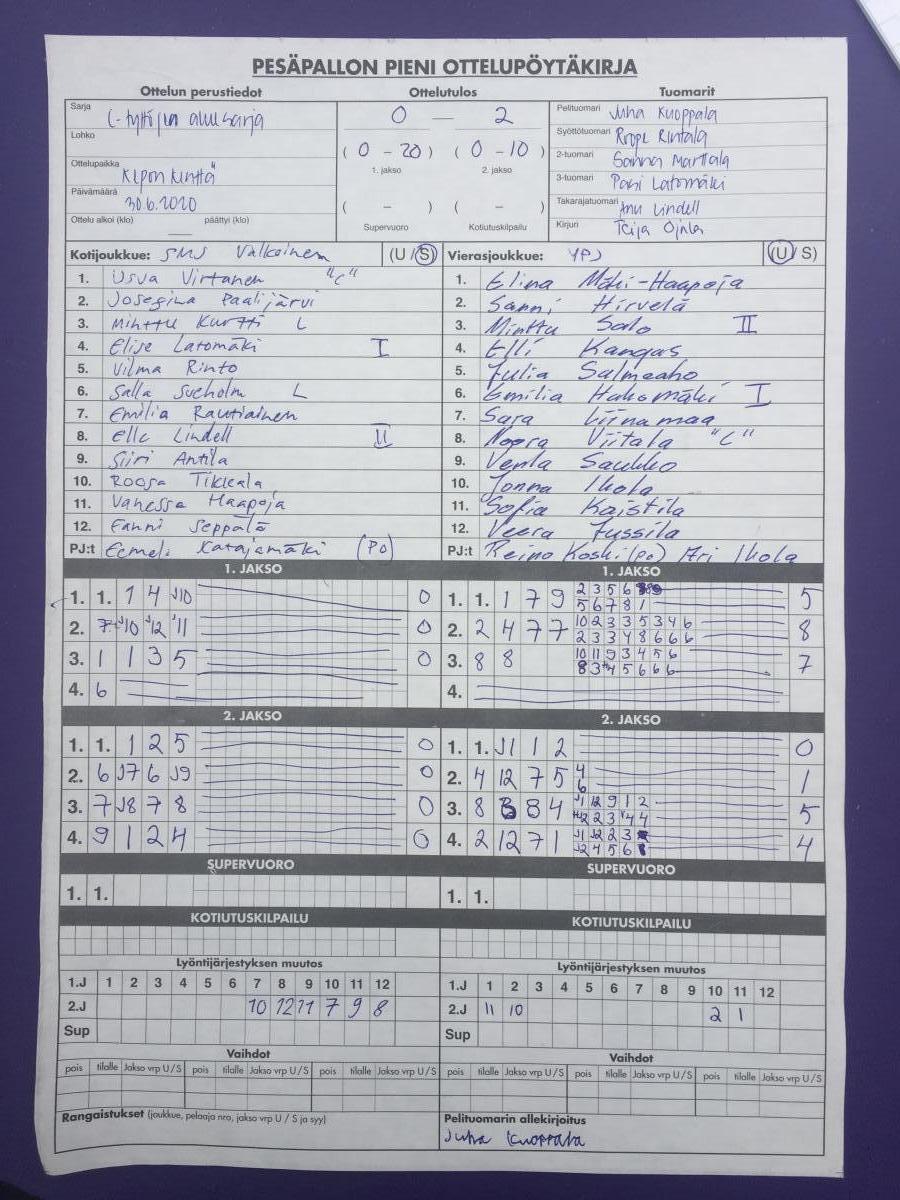 PESÄPALLON PIENI OTTELUPÖYTÄKIRJA
Ottelun perustiedot
Sarja C-tyttöjen aluesarja
Lohko
Ottelupaikka Kipon kenttä
Päivämäärä 30.6.2020
Ottelu alkoi (klo) päättyi (klo)
Ottelutulos
0 — 2
(0 - 20) (0 - 10)
1. jakso 2. jakso
( - ) ( - )
Supervuoro Kotiutuskilpailu
Tuomarit
Pelituomari Juha Kuoppala
Syöttötuomari Roope Rintala
2-tuomari Sanna Marttala
3-tuomari Pasi Latomäki
Takarajatuomari Anu Lindell
Kirjuri Teija Ojala
Kotijoukkue: SMJ Valkoinen (U/S)
1. Usva Virtanen "C"
2. Josefina Paalijärvi
3. Minttu Kurtti L
4. Elise Latomäki I
5. Vilma Rinto
6. Salla Sveholm L
7. Emilia Rautiainen
8. Ella Lindell II
9. Siiri Antila
10. Roosa Tikkala
11. Vanessa Haapoja
12. Fanni Seppälä
PJ:t Eemeli Katajamäki (Po)
Vierasjoukkue: YPJ (U/S)
1. Elina Mäki-Haapoja
2. Sanni Hirvelä
3. Minttu Salo II
4. Elli Kangas
5. Julia Salmeaho
6. Emilia Hakomäki I
7. Sara Liinamaa
8. Noora Viitala "C"
9. Venla Saukko
10. Jonna Ikola
11. Sofia Kaistila
12. Veera Jussila
PJ:t Reino Koski (po) Ari Ikola
1. JAKSO
1. 1. 1 4 J10 0
2. J10 J12 J11 0
3. 1 1 3 5 0
4. 6
2. JAKSO
1. 1. 1 2 5 0
2. 6 J7 6 J9 0
3. 7 J8 7 8 0
4. 9 1 2 4 0
SUPERVUORO
1. 1.
KOTIUTUSKILPAILU
Lyöntijärjestyksen muutos
1.J 1 2 3 4 5 6 7 8 9 10 11 12
2.J 10 12 11 7 9 8
Sup
Vaihdot
pois tilalle Jakso vrp U/S pois tilalle Jakso vrp U/S pois tilalle Jakso vrp U/S
Rangaistukset (joukkue, pelaaja nro, jakso vrp U / S ja syy)
1. JAKSO
1. 1. 1 7 9 2 3 5 6 5
5 6 7 8 1
2. 2 4 7 7 10 2 3 3 5 3 4 6 8
2 3 3 4 8 6 6 6
3. 8 8 10 11 9 3 4 5 6 7
8 3 4 5 6 6 6
4.
2. JAKSO
1. 1. J1 1 2 0
2. 4 12 7 5 4 1
6
3. 8 8 8 4 J1 12 9 1 2 5
2 2 3 4 4
4. 2 12 7 1 J1 J2 2 3 4
J2 4 5 6
SUPERVUORO
1. 1.
KOTIUTUSKILPAILU
Lyöntijärjestyksen muutos
1.J 1 2 3 4 5 6 7 8 9 10 11 12
2.J 11 10 2 1
Sup
Vaihdot
pois tilalle Jakso vrp U/S pois tilalle Jakso vrp U/S pois tilalle Jakso vrp U/S
Pelituomarin allekirjoitus
Juha Kuoppala